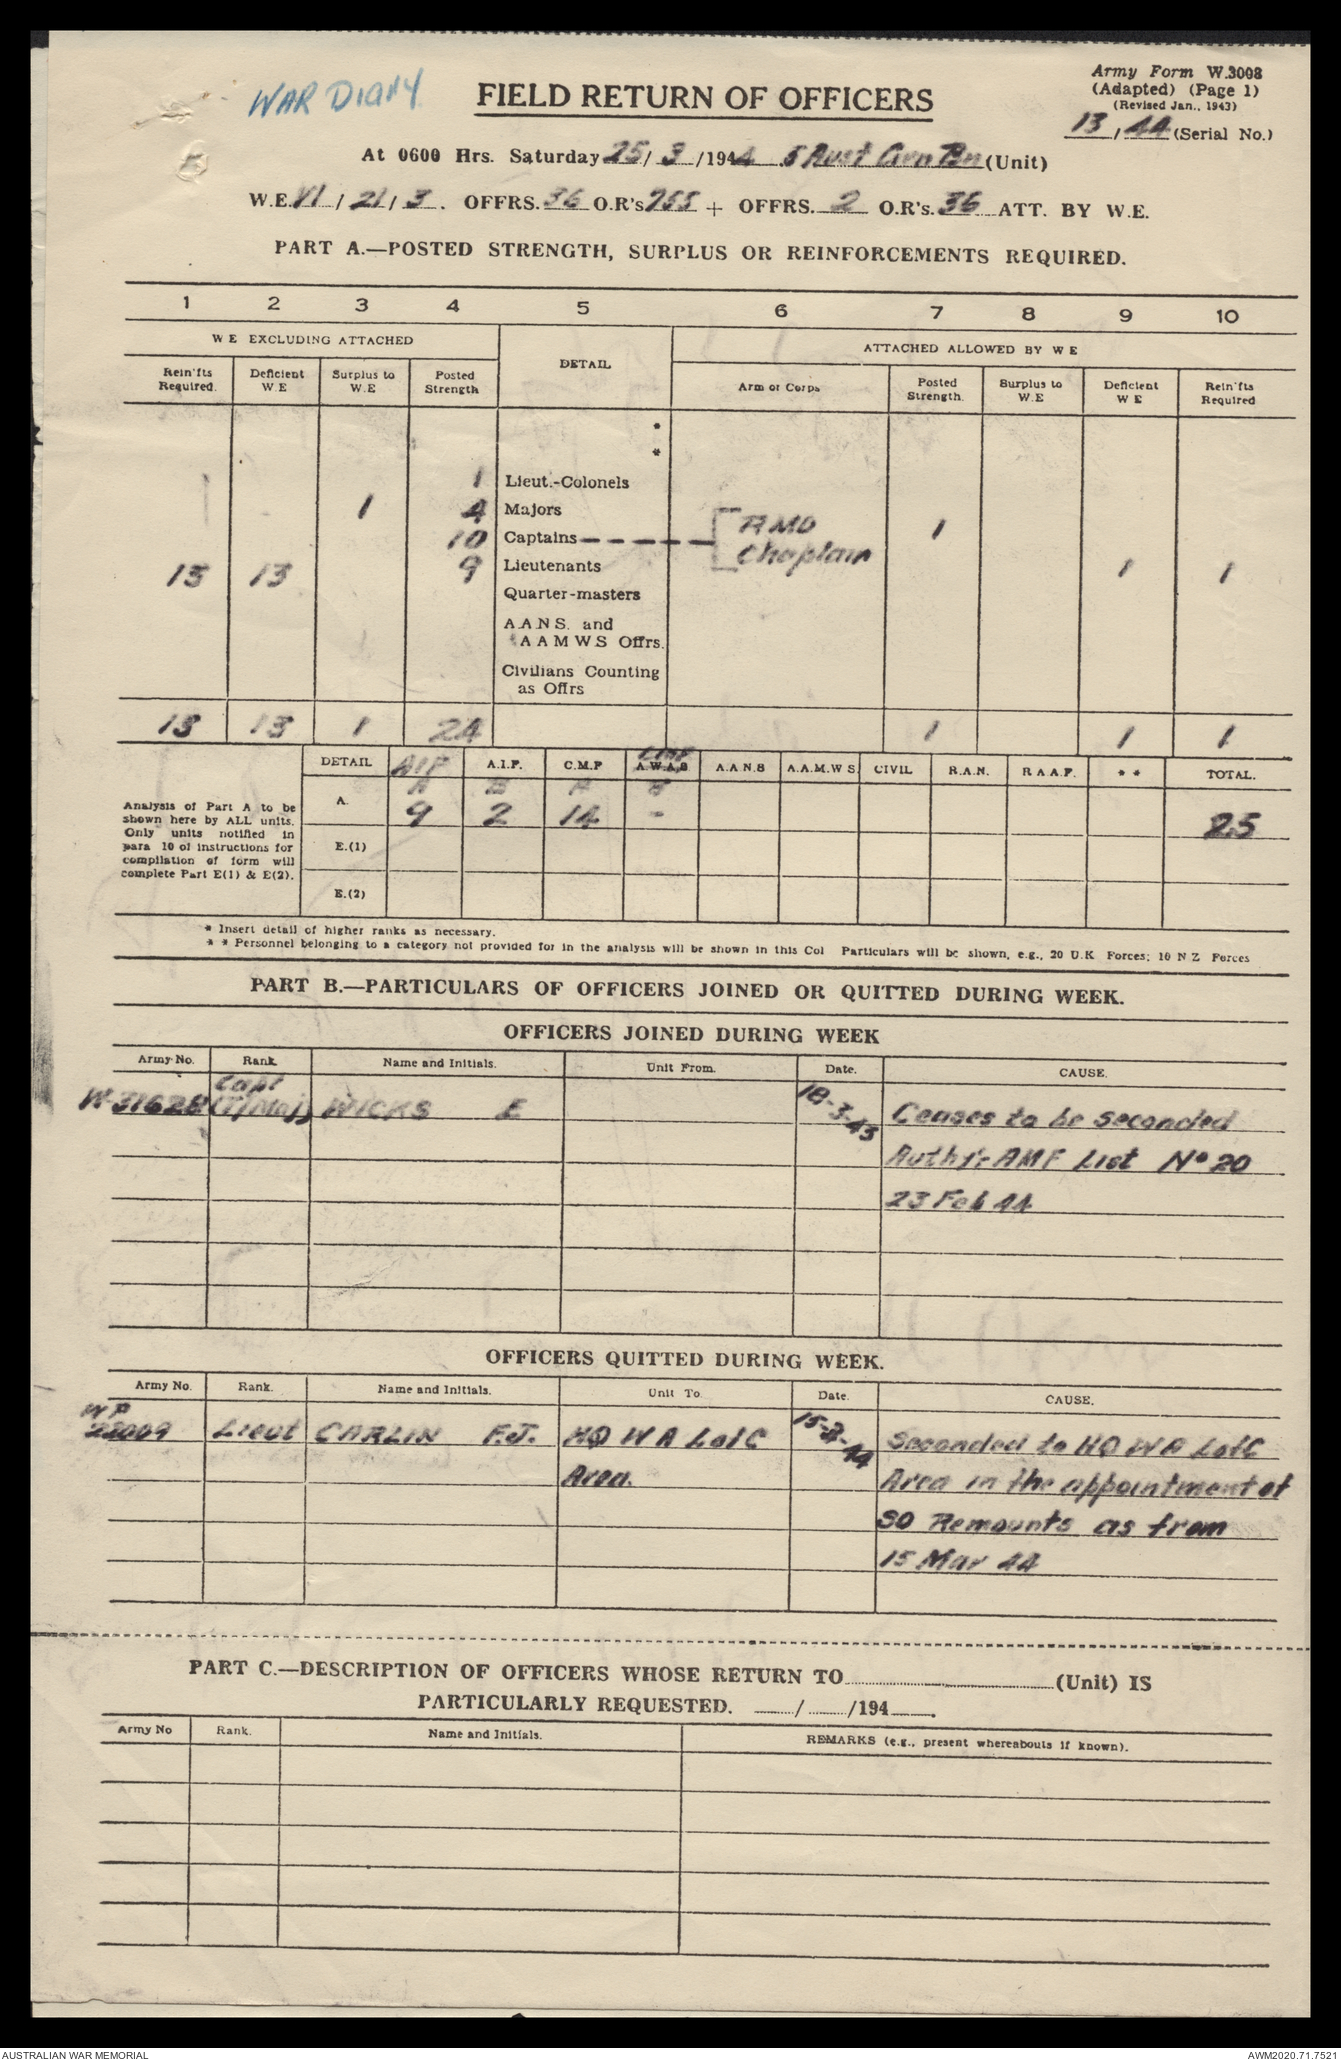 WAR DIARY
FIELD RETURN OF OFFICERS
Army Form W.3008
(Adapted) (Page 1)
(Revised Jan., 1943)
13 / 44 (Serial No.)
At 0600 Hrs. Saturday 25 / 3 /1944 5 Aust Grn Bn (Unit)
W.E. VI / 21 / 3 . OFFRS. 36 O.R's 755 + OFFRS. 2 O.R's. 36 ATT. BY W.E.
PART A.—POSTED STRENGTH, SURPLUS OR REINFORCEMENTS REQUIRED.
1 2 3 4 5 6 7 8 9 10
W E EXCLUDING ATTACHED DETAIL ATTACHED ALLOWED BY W E
Rein'fts Required. Deficient W.E Surplus to W.E Posted Strength Arm or Corps Posted Strength. Surplus to W.E Deficient W E Rein'fts Required
*
*
1 Lieut.-Colonels
1 4 Majors
10 Captains — — — — — [ RMO 1
Chaplain
13 13 9 Lieutenants 1 1
Quarter-masters
A.A.N.S. and
A A M W S Offrs.
Civilians Counting
as Offrs
13 13 1 24 1 1 1
DETAIL AIF A.I.F. C.M.F A.W.A.S A.A.N.S A.A.M.W S CIVIL R.A.N. R A A.F. * * TOTAL.
A B A B
A. 9 2 14 - 25
E.(1)
E.(2)
Analysis of Part A to be
shown here by ALL units.
Only units notified in
para 10 of instructions for
compilation of form will
complete Part E(1) & E(2).
* Insert detail of higher ranks as necessary.
* * Personnel belonging to a category not provided for in the analysis will be shown in this Col Particulars will be shown, e.g., 20 U.K Forces; 10 N Z Forces
PART B.—PARTICULARS OF OFFICERS JOINED OR QUITTED DURING WEEK.
OFFICERS JOINED DURING WEEK
Army No. Rank. Name and Initials. Unit From. Date. CAUSE.
W 31628 Capt (T/Maj) WICKS E 18-3-43 Ceases to be seconded
Authy:- AMF List No 20
23 Feb 44
OFFICERS QUITTED DURING WEEK.
Army No. Rank. Name and Initials. Unit To. Date. CAUSE.
WP
Lieut CARLIN F.J. HQ W A LofC 15-3-44 Seconded to HQ WA LofC
Area. Area in the appointment of
SO Remounts as from
15 Mar 44
PART C.—DESCRIPTION OF OFFICERS WHOSE RETURN TO (Unit) IS
PARTICULARLY REQUESTED. / /194 .
Army No Rank. Name and Initials. REMARKS (e.g., present whereabouts if known).
AUSTRALIAN WAR MEMORIAL AWM2020.71.7521